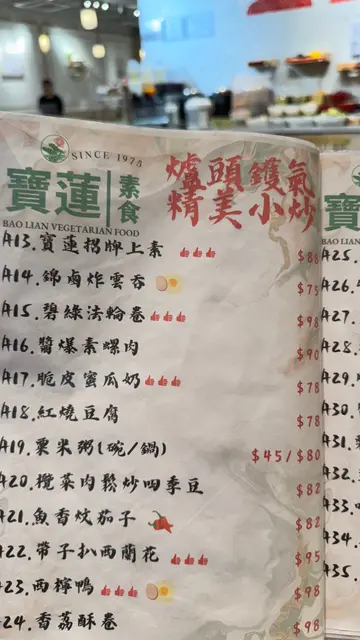 SINCE 1975
寶蓮 素食
BAO LIAN VEGETARIAN FOOD
爐頭鑊氣
精美小炒
A13.寶蓮招牌上素 $88
A14.錦鹵炸雲吞 $75
A15.碧綠法輪卷 $98
A16.醬爆素螺肉 $90
A17.脆皮蜜瓜奶 $78
A18.紅燒豆腐 $78
A19.粟米粥(碗/鍋) $45/$80
A20.欖菜肉鬆炒四季豆 $82
A21.魚香炆茄子 $82
A22.帶子扒西蘭花 $95
A23.西檸鴨 $98
A24.香荔酥卷 $98
寶
BAO L
A25.
A26.
A27.
A28.
A29.
A30.
A31.
A32.
A33.
A34.
A35.